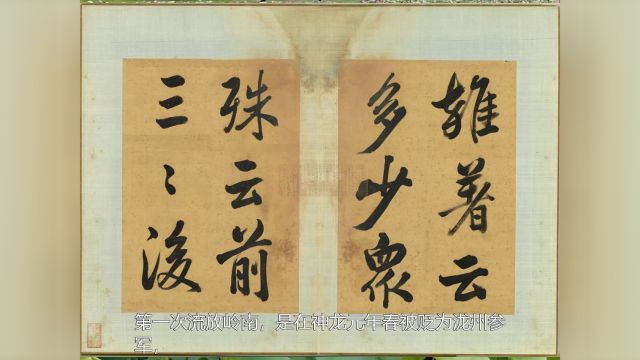 雜著云
多少眾
殊云前
三〻後
第一次流放岭南，是在神龙元年春被贬为泷州参
军，